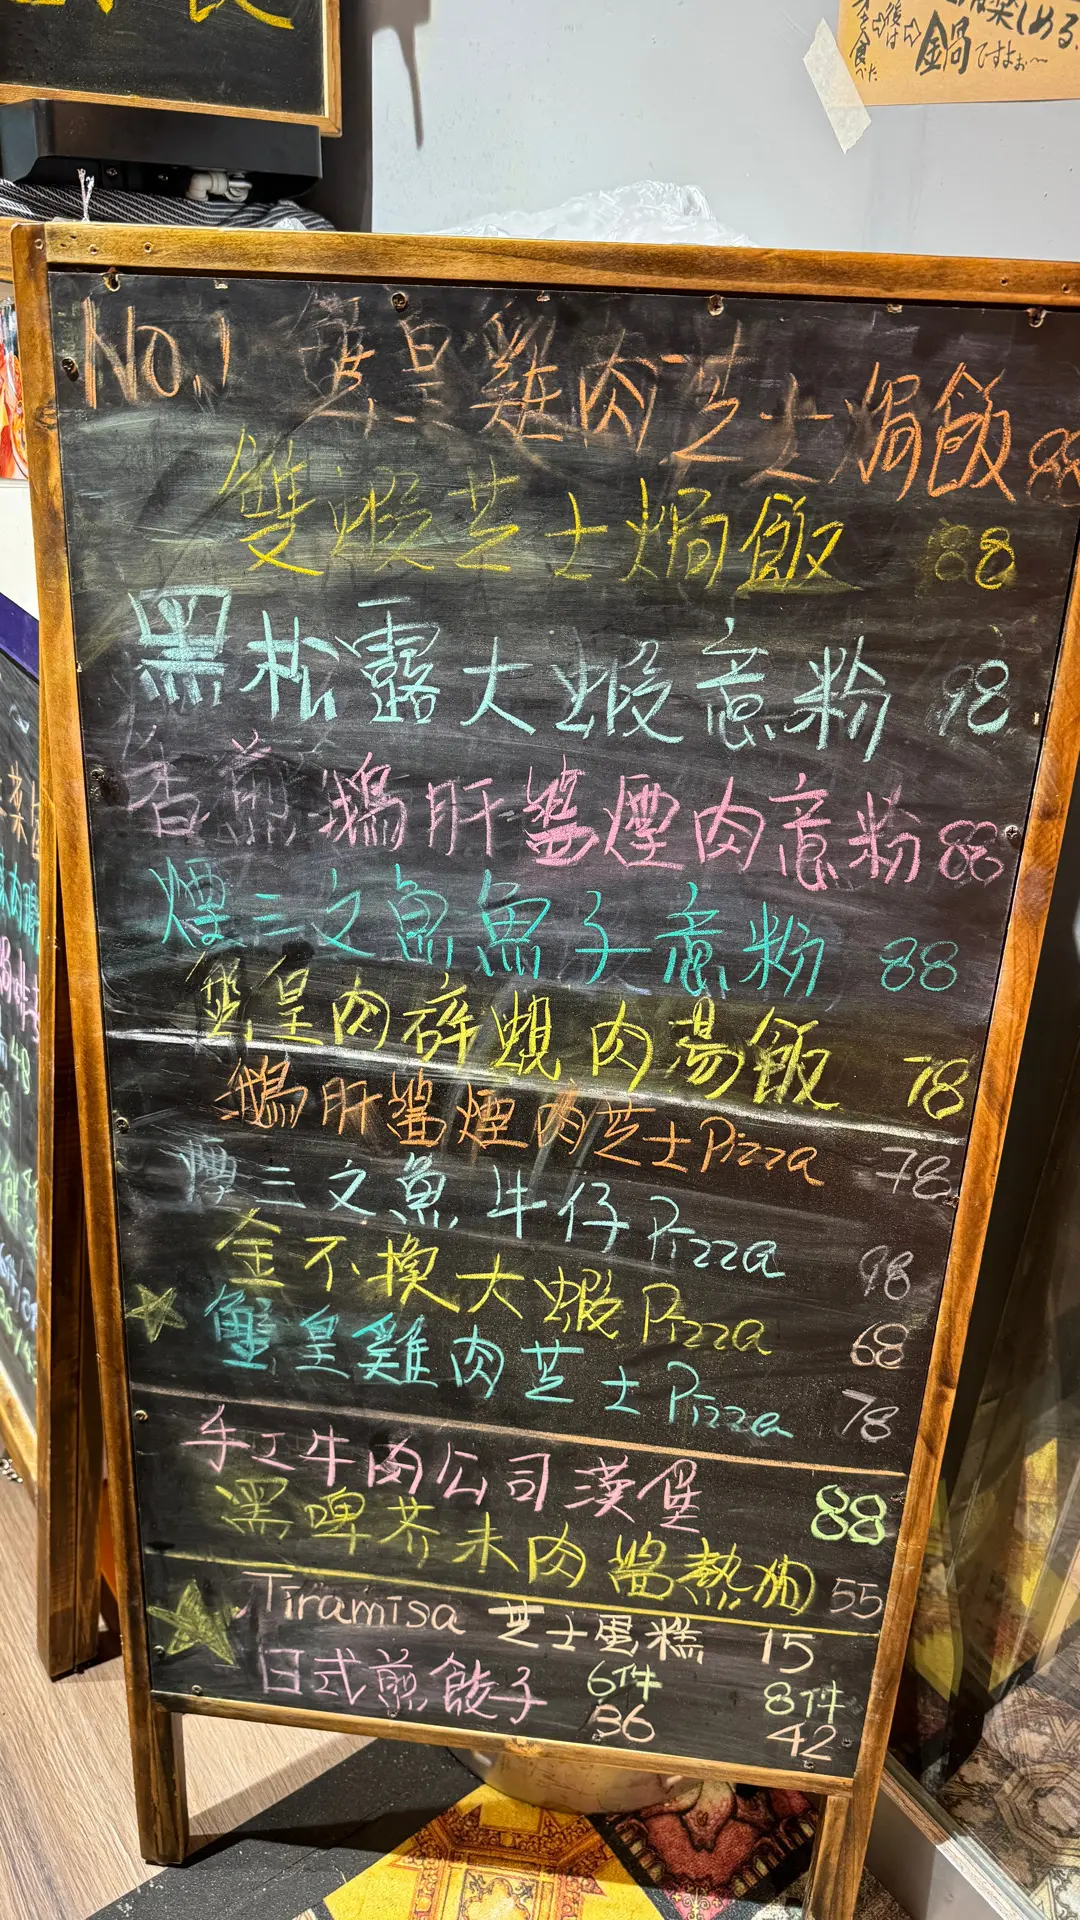 楽しめる
後は
食べた
鍋ですよぉ〜
No.1 蟹皇雞肉芝士焗飯 88
雙蝦芝士焗飯 88
黑松露大蝦意粉 98
香煎鵝肝醬煙肉意粉 88
煙三文魚魚子意粉 88
蟹皇肉碎蜆肉湯飯 78
鵝肝醬煙肉芝士Pizza 78
煙三文魚牛仔Pizza 98
金不換大蝦Pizza 68
蟹皇雞肉芝士Pizza 78
手工牛肉公司漢堡 88
黑啤芥末肉醬熱狗 55
Tiramisa 芝士蛋糕 15
日式煎餃子 6件 8件
36 42